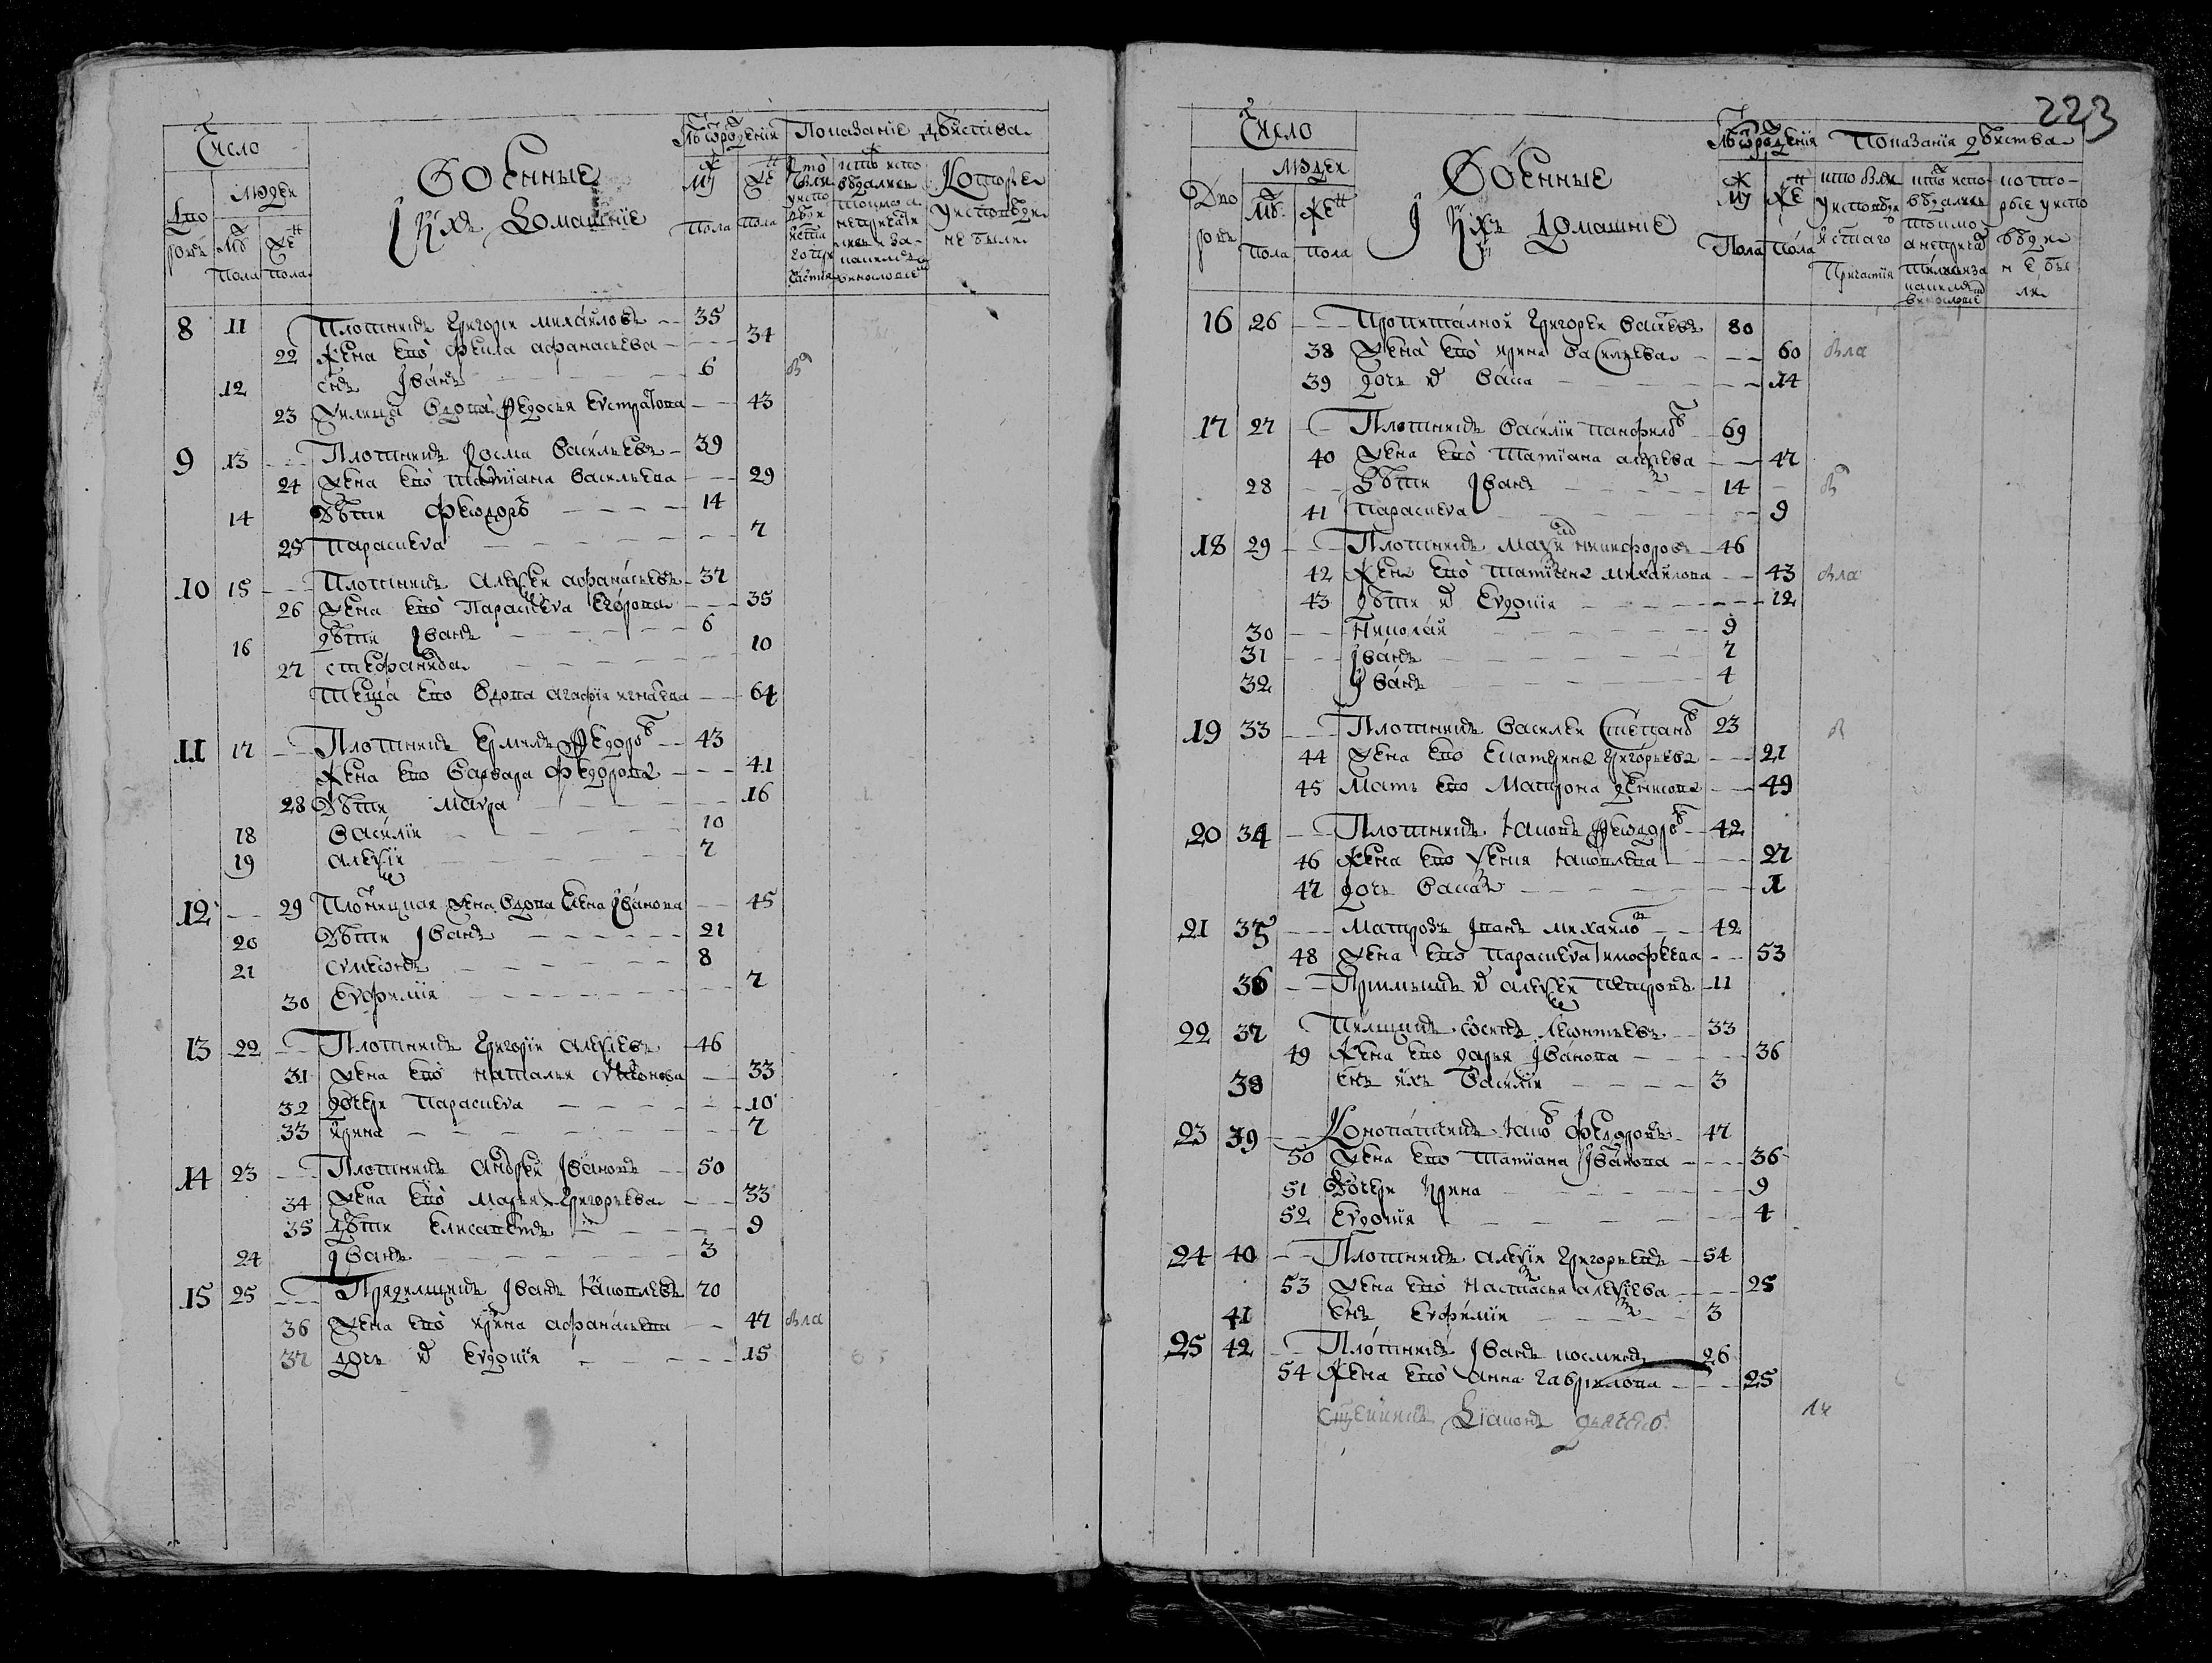 223
Число
Военные
И ихъ Домашние
Лѣта рождения
Показание действа
Дворовъ
Людей
Муж Пола
Жен Пола
Которые у исповеди не были
8 11 Плотникъ Григореи Михайловъ 35
22 Жена ево Фекла Афанасьева 34
12 Снъ Иванъ 6
23 Жилица Вдова Федосья Евстратова 43
9 13 Плотникъ Косма Васильевъ 39
24 Жена ево Татиана Васильева 29
14 Дѣти Феодоръ 14
25 Параскева 7
10 15 Плотникъ Алексеи Афанасьевъ 37
26 Жена ево Параскева Егорова 35
16 Дѣти Иванъ 6
27 Стефанида 10
Теща ево Вдова Агафия Игнатева 64
11 17 Плотникъ Ермилъ Федоровъ 43
Жена ево Варвара Федорова 41
28 Дѣти Мавра 16
18 Василии 10
19 Алексии 7
12 29 Плотницкая Жена Вдова Елена Иванова 45
20 Дѣти Иванъ 21
21 Симеонъ 8
30 Евфимия 7
13 22 Плотникъ Григории Алексиевъ 46
31 Жена ево Наталья Симеонова 33
32 Дочери Параскева 10
33 Ирина 7
14 23 Плотникъ Андреи Ивановъ 50
34 Жена ево Марья Григорьева 33
35 Дѣти Елисаветъ 9
24 Иванъ 3
15 25 Прядилщикъ Иванъ Яковлевъ 70
36 Жена ево Ирина Афанасьева 47 вла
37 Дочь их Евдокия 15
Число
Военные
И ихъ Домашние
Лѣта рождения
Показания действа
Дворовъ
Людей
Муж Пола
Жен Пола
которые у исповеди не были
16 26 Пропиталной Григореи Васиевъ 80
38 Жена ево Ирина Васильева 60 вла
39 Дочь их Васса 14
17 27 Плотникъ Василии Панфиловъ 69
40 Жена ево Татиана Алексиева 47
28 Дѣти Иванъ 14
41 Параскева 9
18 29 Плотникъ Никифоровъ 46
42 Жена ево Татиана Михайлова 43 вла
43 Дѣти их Евдокия 12
30 Николай 9
31 Иванъ 7
32 Иванъ 4
19 33 Плотникъ Василеи Степановъ 23
44 Жена ево Екатерина Григорьева 21
45 Мать ево Матрона Денисова 49
20 34 Плотникъ Яковъ Феодоровъ 42
46 Жена ево Ксения Яковлева 27
47 Дочь Васса 1
21 35 Матрозъ Иванъ Михайловъ 42
48 Жена ево Параскева Тимофеева 53
36 их Алексеи Петровъ 11
22 37 Пилщикъ Леонтьевъ 33
49 Жена ево Дарья Иванова 36
38 Снъ ихъ Василии 3
23 39 Конопатчикъ Яковъ Федоровъ 47
50 Жена ево Татиана Иванова 36
51 Дочери Ирина 9
52 Евдокия 4
24 40 Плотникъ Алексии Григорьевъ 54
53 Жена ево Настасья Алексиева 25
41 Снъ Евфимии 3
25 42 Плотникъ Иванъ 26
54 Жена ево Анна Гаврилова 25